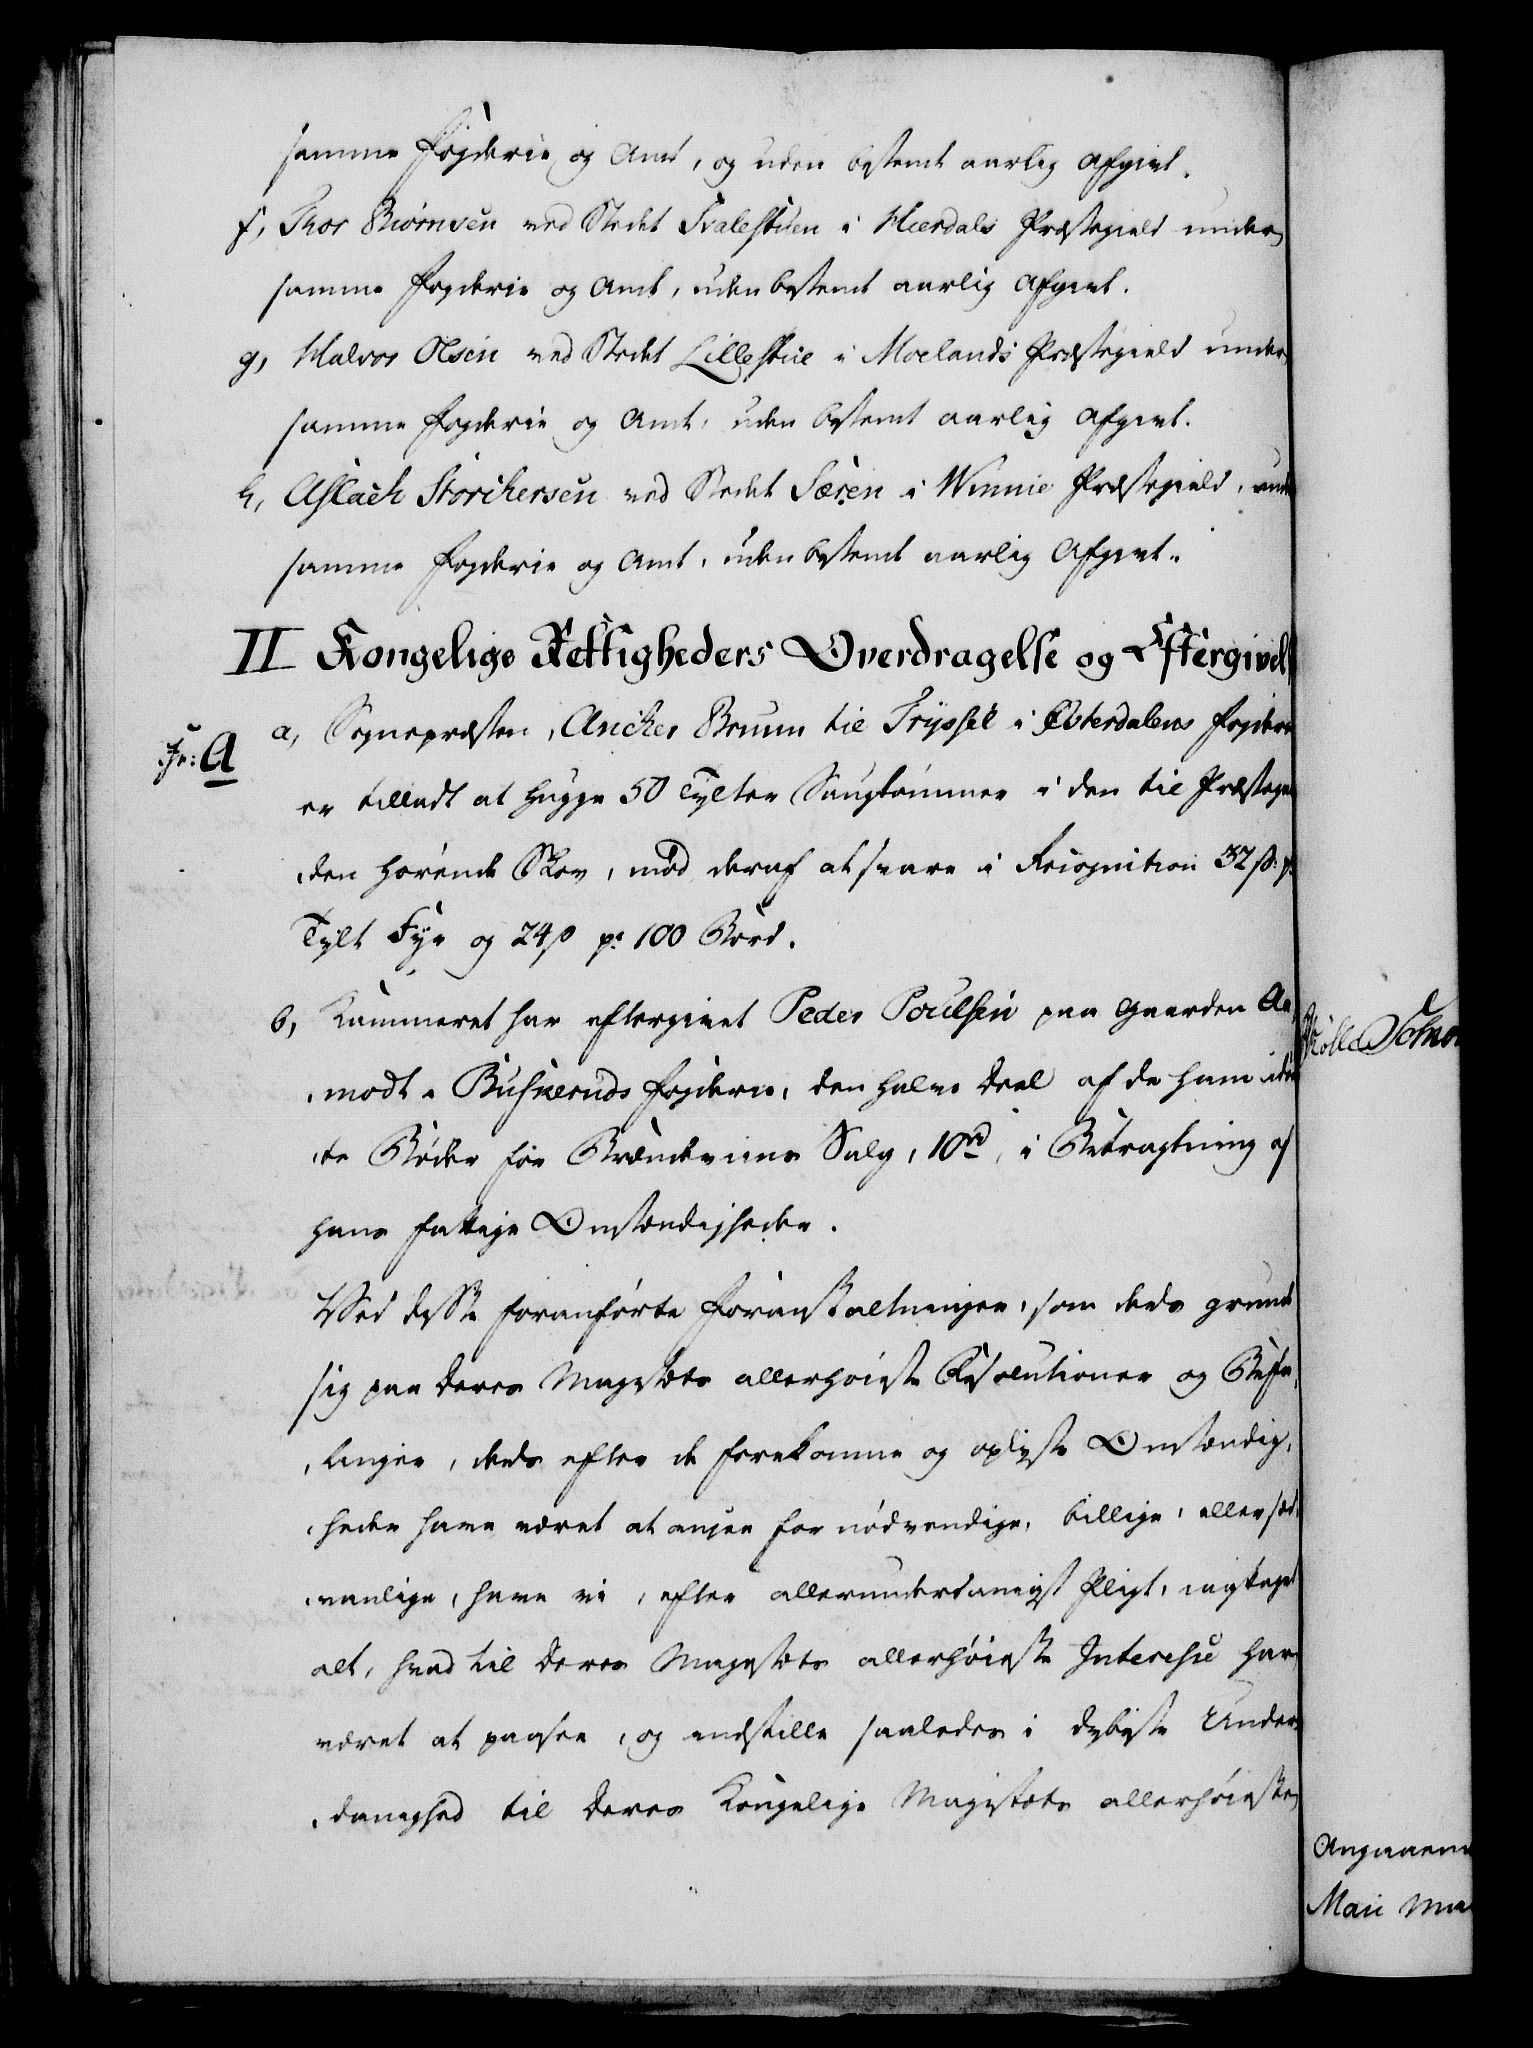 samme Fogderie og Amt, og uden bestemt aarlig Afgivt.
f, Thor Biörnsen ved Stedet Tvalestuen i Hierdals Præstegield under
samme Fogderie og Amt, uden bestemt aarlig Afgivt.
g, Halvor Olsen ved Stedet Lillestue i Moelands Præstegield under
samme Fogderie og Amt, uden bestemt aarlig Afgivt.
h, Aslach Storchersen ved Stedet Særen i Winnie Præstegield, unde
samme Fogderie og Amt, uden bestemt aarlig Afgivt.
II Kongelige Rettigheders Overdragelse og Eftergivels
Fr: A
a, Sognepræsten, Ancher Bruun til Tryssel i Østerdalens Fogderie
er tilladt at hugge 50 Tylter Saugtømmer i den til Præstegaar
den hörende Skov, mod deraf at svare i Recognition 32 ß: pr
Tylt Fyr og 24 ß pr 100 Bord.
b, Kammeret har eftergivet Peder Poulsen paa Gaarden Aa
modt i Buskeruds Fogderie, den halve Deel af de ham idöm
te Bøder for Brændeviins Salg, 10 rd, i Betragtning af
hans fattige Omstændigheder.
Ved disse foranførte Foranstaltninger, som deels grunde
sig paa Deres Majestæts allerhöieste Resolutioner og Befa
linger, deels efter de forekomne og oplyste Omstændig
heder have været at ansee for nödvendige, billige, eller sæd
vanlige, have vi, efter allerunderdanigst Pligt, iagttaget
alt, hvad til Deres Majestæts allerhöieste Interesse har
været at paasee, og indstille saaledes i dybeste Under
danighed til Deres Kongelige Majestæts allerhöieste
Angaaen